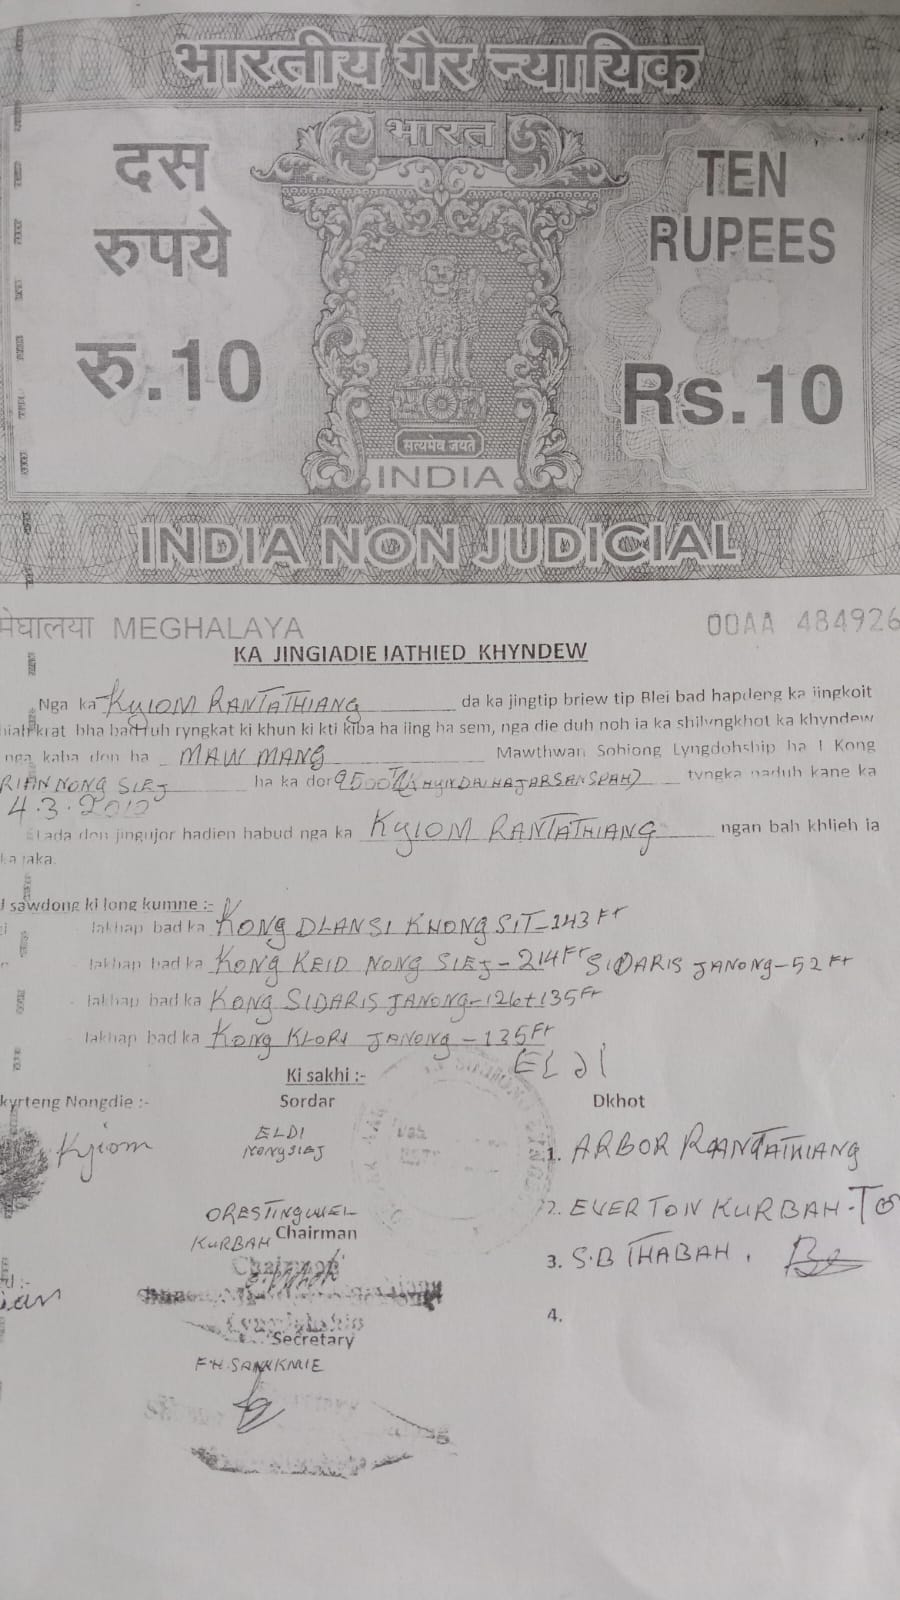 भारतीय गैर न्यायिक
भारत
दस
रुपये
रु.10
TEN
RUPEES
Rs.10
सत्यमेव जयते
INDIA
INDIA NON JUDICIAL
मेघालया MEGHALAYA
00AA 484926
KA JINGIADIE IATHIED KHYNDEW
Nga ka KYIOM RANTATHIANG da ka jingtip briew tip Blei bad hapdeng ka jingkoit
krat bha bad ruh ryngkat ki khun ki kti kiba ha iing ha sem, nga die duh noh ia ka shilyngkhot ka khyndew
nga kaba don ha MAW MANG Mawthwan Sohiong Lyngdohship ha I Kong
RIAN NONG SIEJ ha ka dor 9500 (KHYNDAI HAJAR SAN SPAH) tyngka naduh kane ka
4.3.2010
Lada don jingujor hadien habud nga ka KYIOM RANTATHIANG ngan bah khlieh ia
ka jaka.
sawdong ki long kumne :-
lakhap bad ka KONG DLANSI KHONG SIT-143 Ft
lakhap bad ka KONG KEID NONG SIEJ-214 Ft SIDARIS JANONG-52 Ft
lakhap bad ka KONG SIDARIS JANONG-126+135 Ft
lakhap bad ka KONG KLORI JANONG-135 Ft
ELDI
Ki sakhi :-
kyrteng Nongdie :-
Sordar
Dkhot
Kyiom
ELDI
NONGSIEJ
1. ARBOR RANTATHIANG
ORESTINGWEL
KURBAH
Chairman
2. EVERTON KURBAH.
3. S.B THABAH.
Chairman
4.
Secretary
F.H.SANKMIE